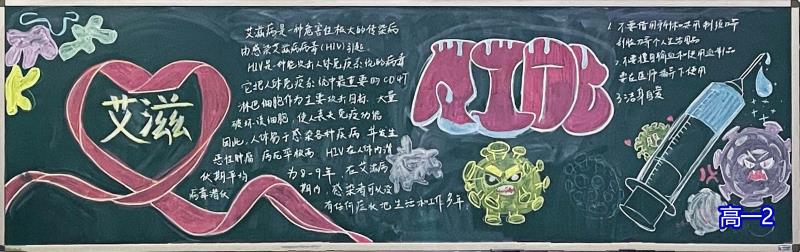 艾滋
艾滋病是一种危害性极大的传染病
由感染艾滋病病毒(HIV)引起
HIV是一种能攻击人体免疫系统的病毒
它把人体免疫系统中最重要的CD4T
淋巴细胞作为主要攻击目标,大量
破坏该细胞,使人丧失免疫功能
因此,人体易于感染各种疾病,并发生
恶性肿瘤 病死率较高 HIV在人体内潜
伏期平均 为8-9年 在艾滋病
病毒潜伏 期内,感染者可以没
有任何症状地生活和工作多年。
AIDS
1.不要借用或共用
剃须刀等个人生活用品
2.不要擅自输血和使用血制品
要在医师指导下使用
3.洁身自爱
高一2